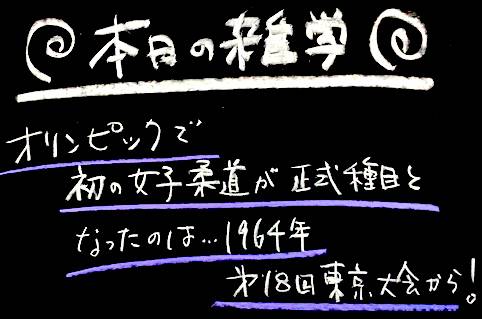 本日の雑学
オリンピックで
初の女子柔道が正式種目と
なったのは…1964年
第18回東京大会から!